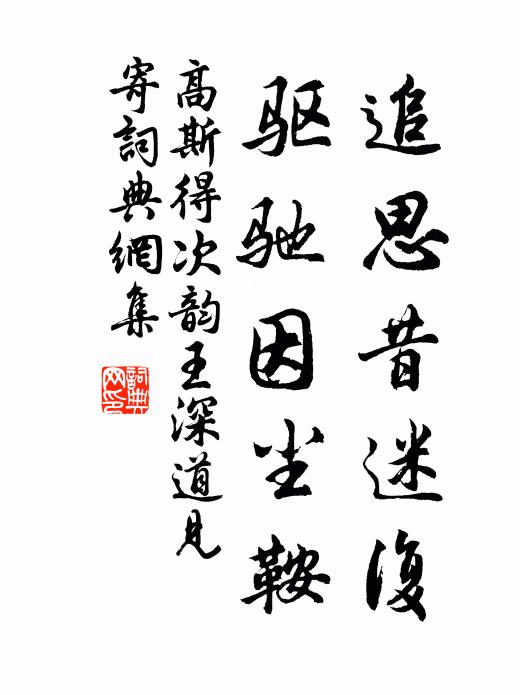 追思昔迷復
驱驰因尘鞍
高斯得次韵王深道见
寄詞典網集
詞典
网印